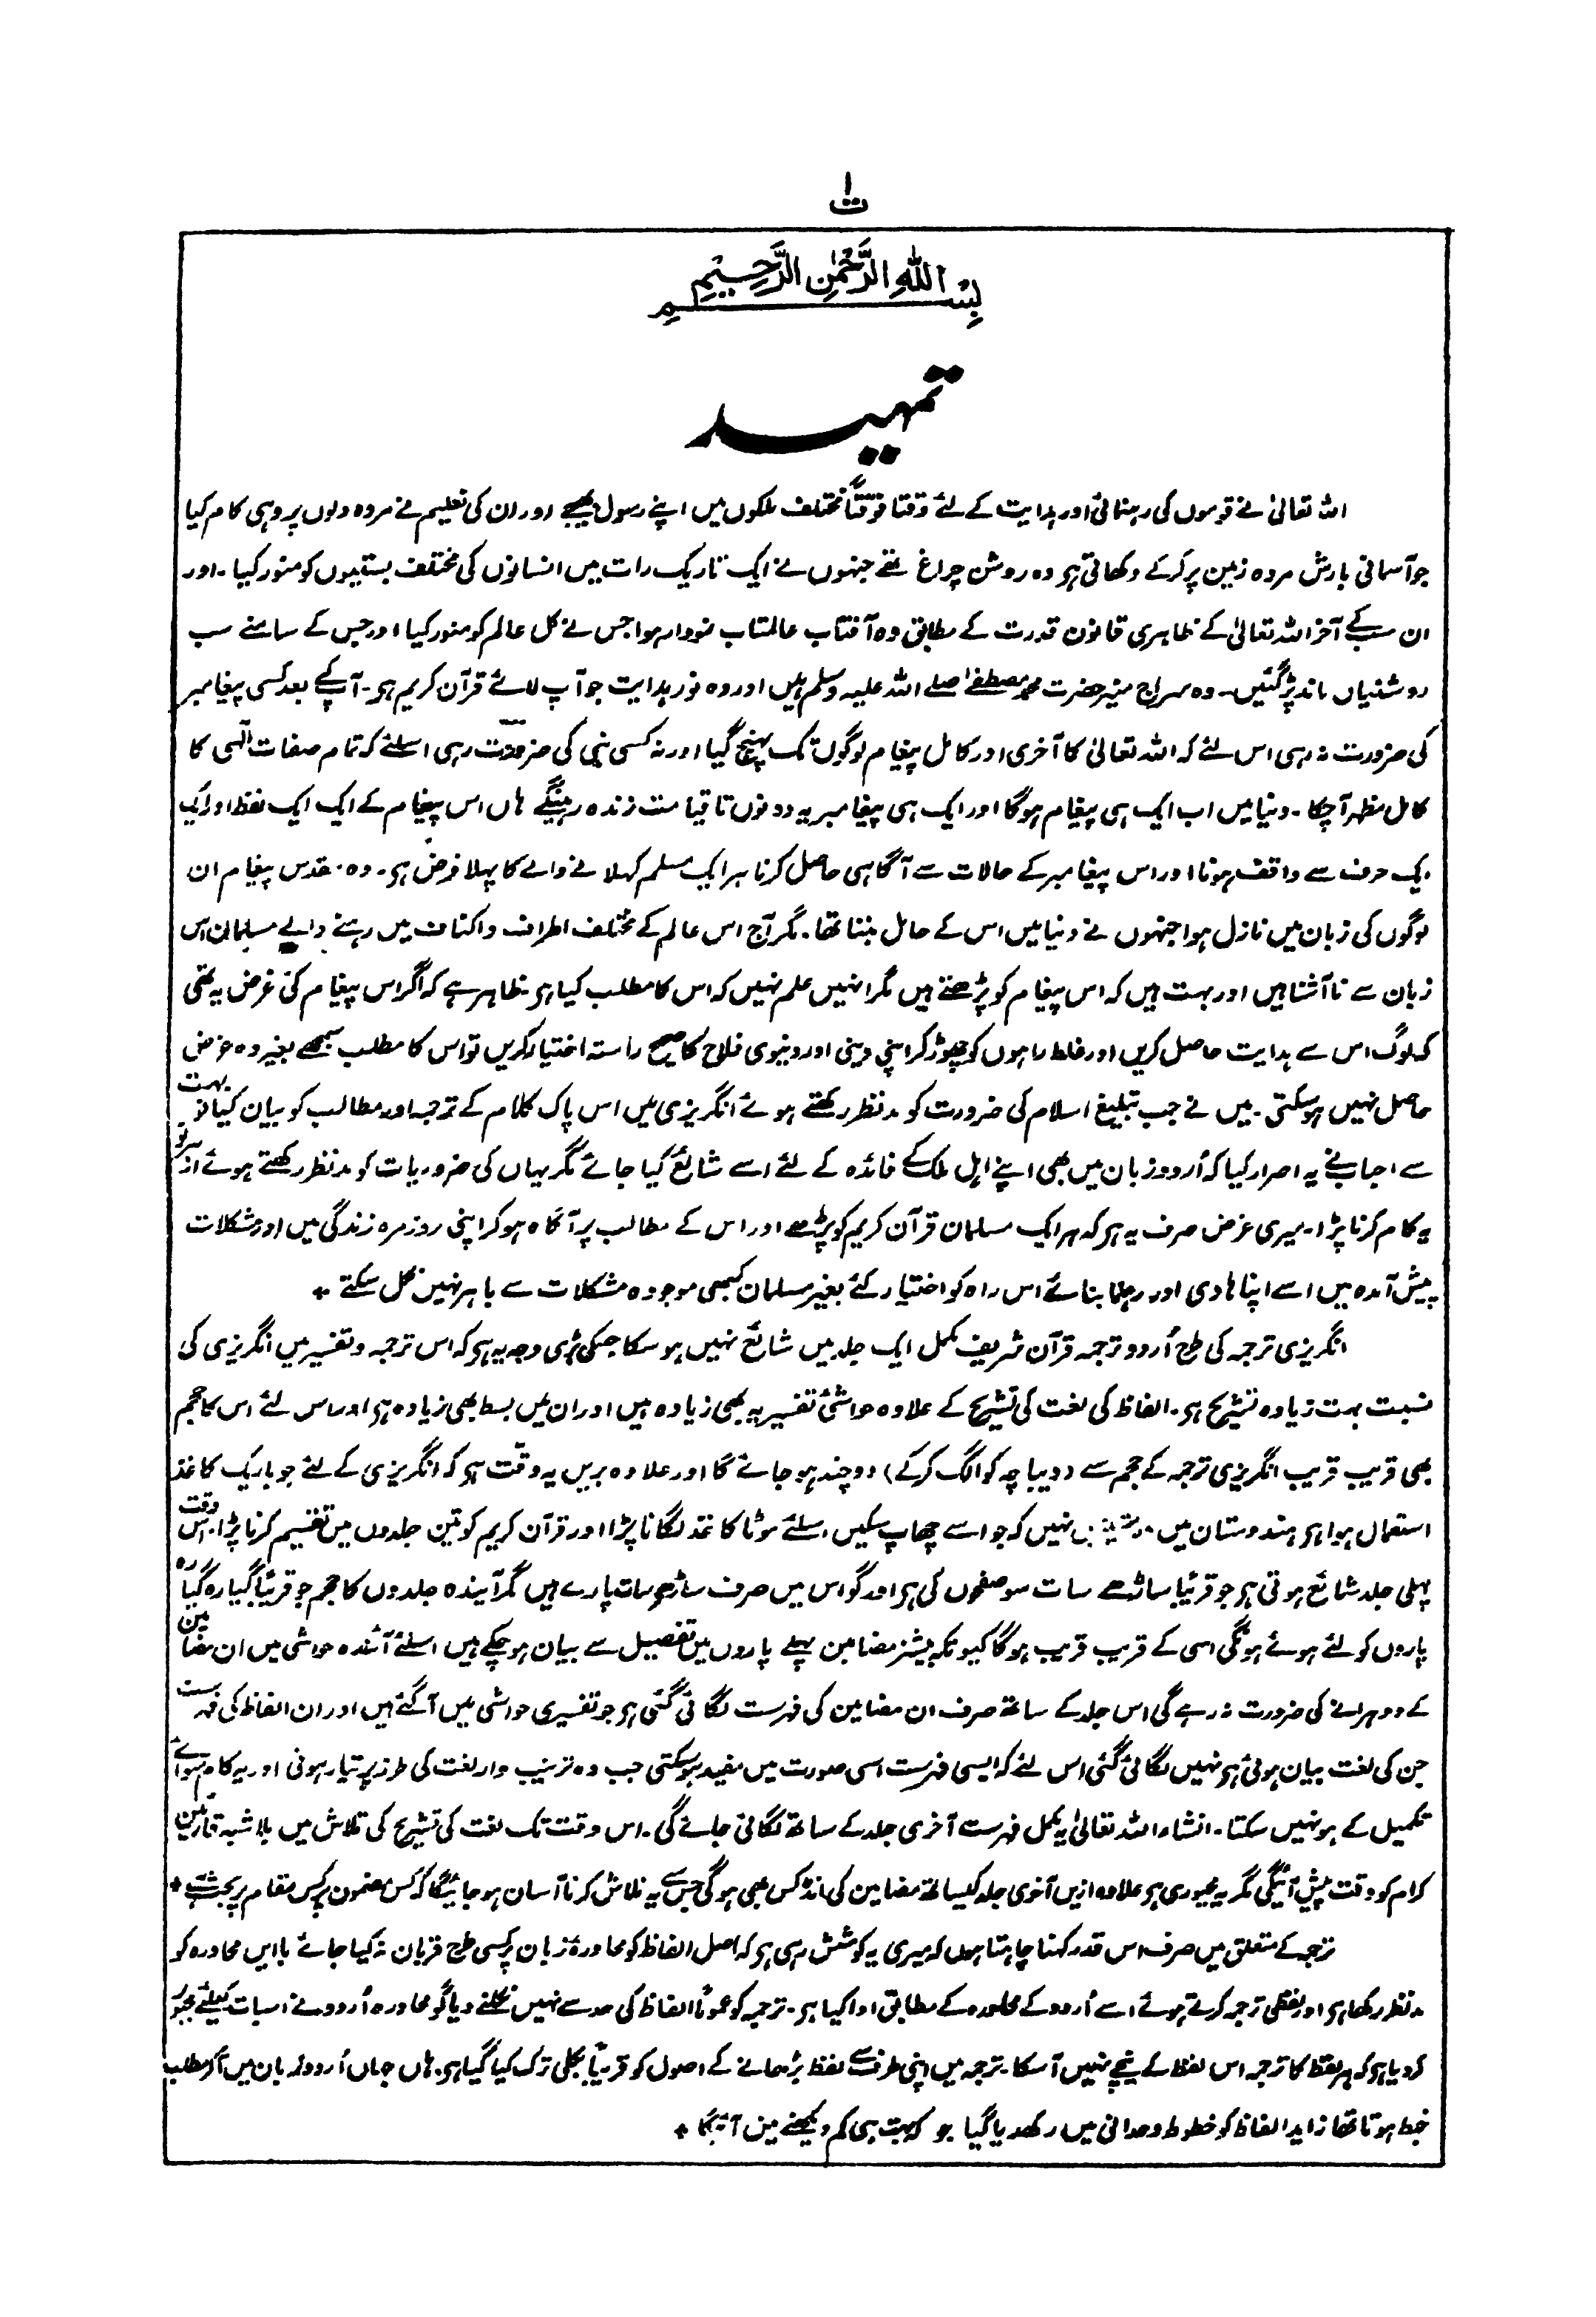 ا
ت
بِسْمِ اللّٰهِ الرَّحْمٰنِ الرَّحِيْمِ
تمہید
اللہ تعالیٰ نے قوموں کی رہنمائی اور ہدایت کے لئے وقتا فوقتاً مختلف ملکوں میں اپنے رسول بھیجے اور ان کی تعلیم نے مردہ دلوں پر وہی کام کیا
جو آسمانی بارش مردہ زمین پر کرکے دکھاتی ہو وہ روشن چراغ تھے جنہوں نے ایک تاریک رات میں انسانوں کی مختلف بستیوں کو منور کیا ۔ اور
ان سب کے آخر اللہ تعالیٰ کے ظاہری قانون قدرت کے مطابق وہ آفتاب عالمتاب نمودار ہوا جس نے کل عالم کو منور کیا اور جس کے سامنے سب
روشنیاں ماند پڑ گئیں۔ وہ سراج منیر حضرت محمد مصطفےٰ صلے اللہ علیہ وسلم ہیں اور وہ نور ہدایت جو آپ لائے قرآن کریم ہو۔ آپ کے بعد کسی پیغامبر
کی ضرورت نہ رہی اس لئے کہ اللہ تعالیٰ کا آخری اور کامل پیغام لوگوں تک پہنچ گیا اور نہ کسی نبی کی ضرورت رہی اسلئے کہ تمام صفات الٰہی کا
کامل مظہر آچکا ۔ دنیا میں اب ایک ہی پیغام ہوگا اور ایک ہی پیغامبر یہ دونوں تا قیامت زندہ رہینگے ہاں اس پیغام کے ایک ایک لفظ اور ایک
ایک حرف سے واقف ہونا اور اس پیغامبر کے حالات سے آگاہی حاصل کرنا ہر ایک مسلم کہلانے والے کا پہلا فرض ہو۔ وہ مقدس پیغام ان
لوگوں کی زبان میں نازل ہوا جنہوں نے دنیا میں اس کے حامل بننا تھا۔ مگر آج اس عالم کے مختلف اطراف و اکناف میں رہنے والے مسلمان اس
زبان سے نا آشنا ہیں اور بہت ہیں کہ اس پیغام کو پڑھتے ہیں مگر انہیں علم نہیں کہ اس کا مطلب کیا ہو ظاہر ہے کہ اگر اس پیغام کی غرض یہ تھی
کہ لوگ اس سے ہدایت حاصل کریں اور غلط راہوں کو چھوڑ کر اپنی دینی اور دنیوی فلاح کا صحیح راستہ اختیار کریں تو اس کا مطلب سمجھے بغیر وہ غرض
حاصل نہیں ہو سکتی ۔ میں نے جب تبلیغ اسلام کی ضرورت کو مد نظر رکھتے ہوئے انگریزی میں اس پاک کلام کے ترجمہ اور مطالب کو بیان کیا تو بہت
سے احباب نے یہ اصرار کیا کہ اُردو زبان میں بھی اپنے اہل ملک کے فائدہ کے لئے اسے شائع کیا جائے مگر یہاں کی ضروریات کو مد نظر رکھتے ہوئے از سر نو
یہ کام کرنا پڑا ۔ میری غرض صرف یہ ہو کہ ہر ایک مسلمان قرآن کریم کو پڑھے اور اس کے مطالب پر آگاہ ہو کر اپنی روزمرہ زندگی میں اور مشکلات
پیش آمدہ میں اسے اپنا ہادی اور رہنما بنائے اس راہ کو اختیار کئے بغیر مسلمان کبھی موجودہ مشکلات سے باہر نہیں نکل سکتے +
انگریزی ترجمہ کی طرح اُردو ترجمہ قرآن شریف مکمل ایک جلد میں شائع نہیں ہو سکا جسکی بڑی وجہ یہ ہو کہ اس ترجمہ و تفسیر میں انگریزی کی
نسبت بہت زیادہ تشریح ہو۔ الفاظ کی لغت کی تشریح کے علاوہ حواشیٔ تفسیریہ بھی زیادہ ہیں اور ان میں بسط بھی زیادہ ہو اور اس لئے اس کا حجم
بھی قریب قریب انگریزی ترجمہ کے حجم سے (دیباچہ کو الگ کر کے) دو چند ہو جائے گا اور علاوہ بریں یہ دقّت ہو کہ انگریزی کے لئے جو باریک کاغذ
استعمال ہوا ہو ہندوستان میں نہیں کہ جو اسے چھاپ سکیں اسلئے موٹا کاغذ لگانا پڑا اور قرآن کریم کو تین جلدوں میں تقسیم کرنا پڑا۔ اس وقت
پہلی جلد شائع ہوتی ہو جو قریباً ساڑھے سات سو صفحوں کی ہو اور گو اس میں صرف ساڑھے سات پارے ہیں مگر آیندہ جلدوں کا حجم جو قریباً گیارہ گیارہ
پاروں کو لئے ہوئے ہونگی اسی کے قریب قریب ہوگا کیونکہ بیشتر مضامین پہلے پاروں میں تفصیل سے بیان ہو چکے ہیں اسلئے آئندہ حواشی میں ان مضامین
کے دوہرانے کی ضرورت نہ رہے گی اس جلد کے ساتھ صرف ان مضامین کی فہرست لگائی گئی ہو جو تفسیری حواشی میں آگئے ہیں اور ان الفاظ کی فہرست
جن کی لغت بیان ہوئی ہو نہیں لگائی گئی اس لئے کہ ایسی فہرست اسی صورت میں مفید ہو سکتی جب وہ ترتیب وار لغت کی طرز پر تیار ہوتی اور یہ کام سوائے
تکمیل کے ہو نہیں سکتا ۔ انشاء اللہ تعالیٰ یہ مکمل فہرست آخری جلد کے ساتھ لگائی جائے گی ۔ اس وقت تک لغت کی تشریح کی تلاش میں بلا شبہ قارئین
کرام کو دقت پیش آئیگی مگر یہ مجبوری ہو علاوہ ازیں آخری جلد کیساتھ مضامین کی انڈکس بھی ہوگی جس سے یہ تلاش کرنا آسان ہو جائیگا کہ کس مضمون پر کس مقام پر بحث ہے +
ترجمہ کے متعلق میں صرف اس قدر کہنا چاہتا ہوں کہ میری یہ کوشش رہی ہو کہ اصل الفاظ کو محاورۂ زبان پر کسی طرح قربان نہ کیا جائے بایں محاورہ کو
مد نظر رکھا ہو اور لفظی ترجمہ کرتے ہوئے اسے اُردو کے محاورہ کے مطابق ادا کیا ہو۔ ترجمہ کو عموماً الفاظ کی حد سے نہیں نکلنے دیا گو محاورہ اُردو نے اسبات کیلئے مجبور
کر دیا ہو کہ ہر لفظ کا ترجمہ اس لفظ کے نیچے نہیں آسکا۔ ترجمہ میں اپنی طرف سے لفظ بڑھانے کے اصول کو قریباً بکلی ترک کیا گیا ہو۔ ہاں جہاں اُردو زبان میں اگر مطلب
خبط ہوتا تھا زاید الفاظ کو خطوط وحدانی میں رکھدیا گیا جو کہ بہت ہی کم دیکھنے میں آئیگا +